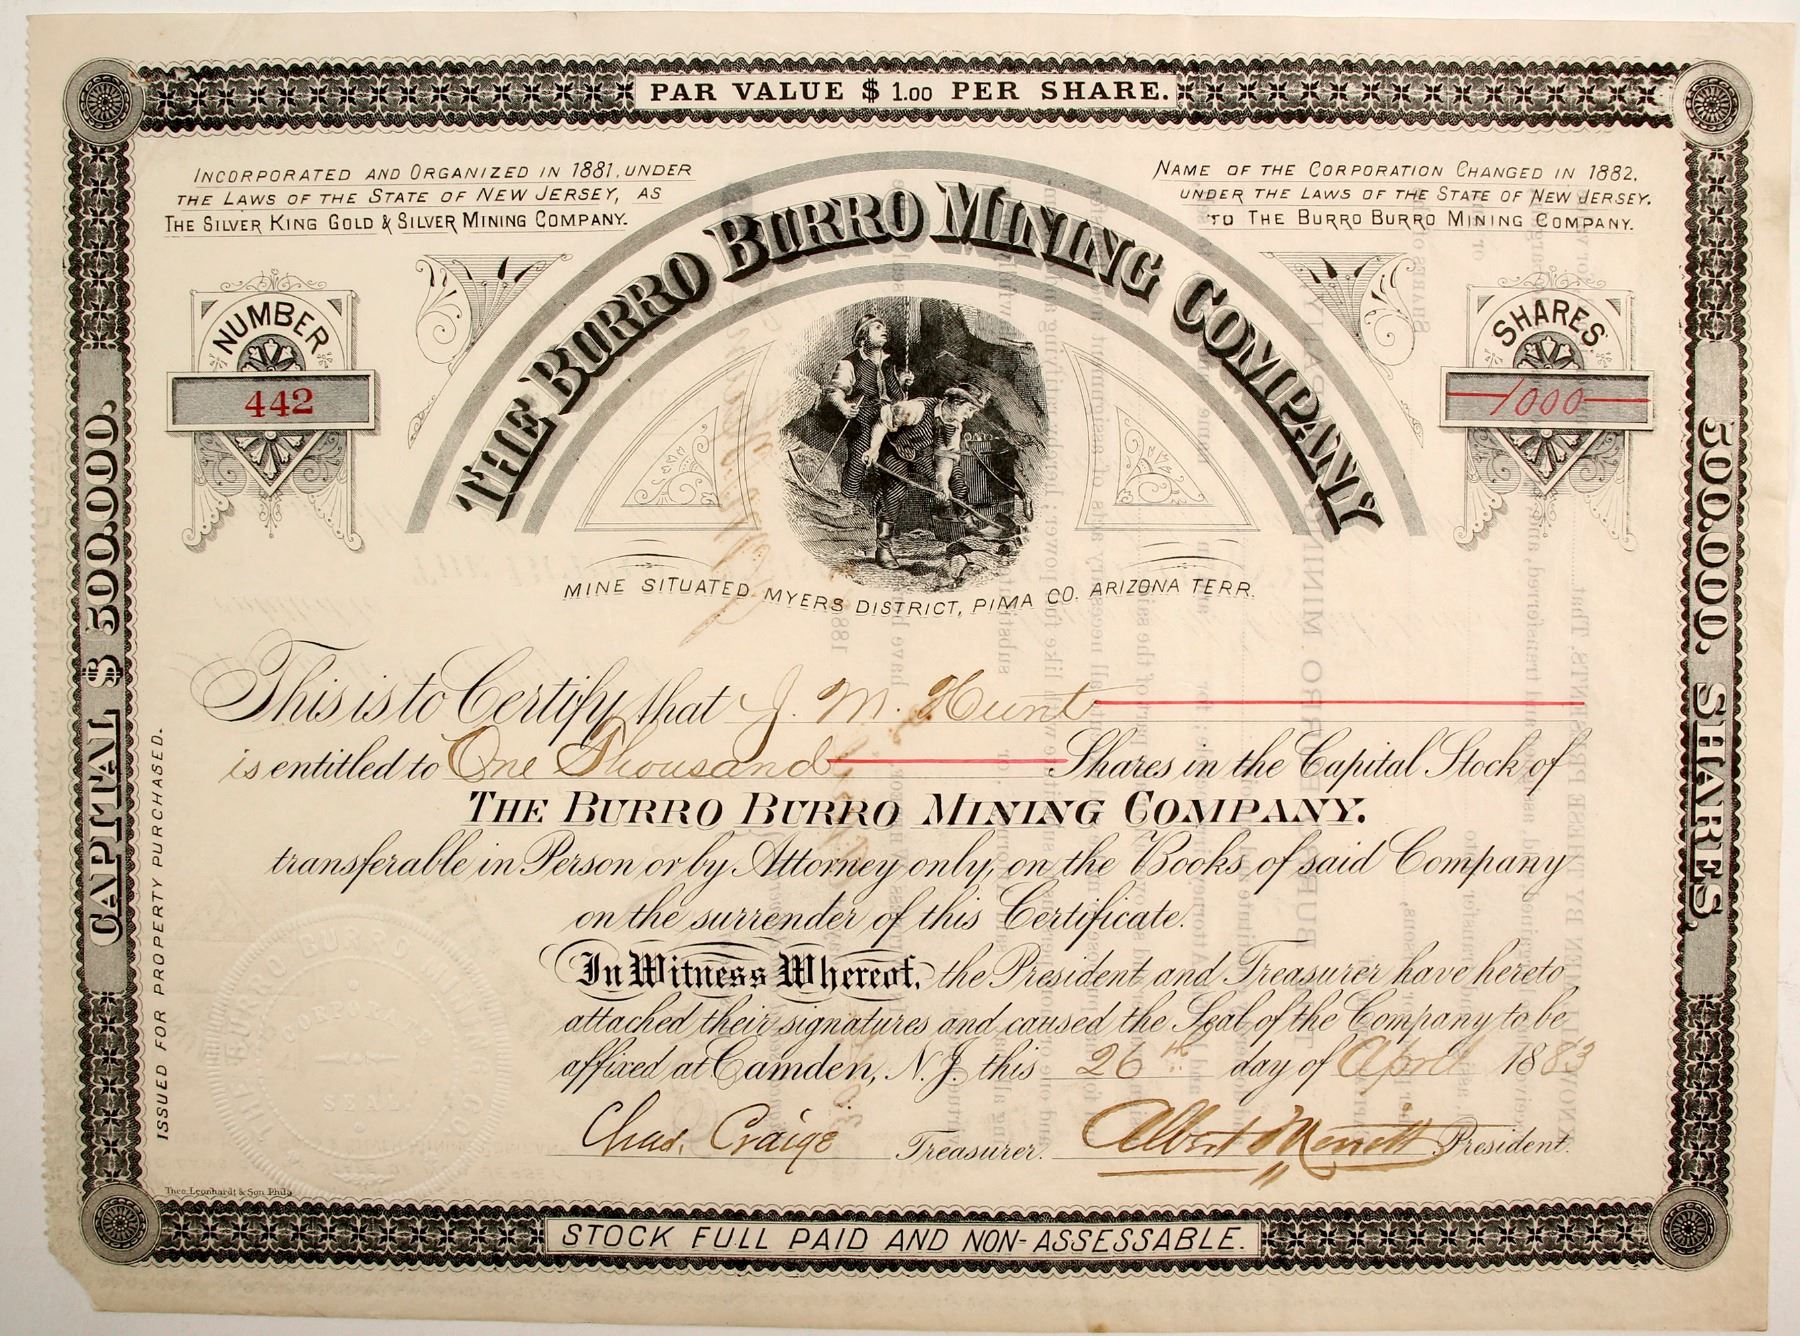 PAR VALUE $ 1.00 PER SHARE.
INCORPORATED AND ORGANIZED IN 1881, UNDER
THE LAWS OF THE STATE OF NEW JERSEY, AS
THE SILVER KING GOLD & SILVER MINING COMPANY.
NAME OF THE CORPORATION CHANGED IN 1882,
UNDER THE LAWS OF THE STATE OF NEW JERSEY.
TO THE BURRO BURRO MINING COMPANY.
THE BURRO BURRO MINING COMPANY
NUMBER
442
SHARES
1000
MINE SITUATED MYERS DISTRICT, PIMA CO. ARIZONA TERR.
CAPITAL $ 500.000.
500.000. SHARES.
ISSUED FOR PROPERTY PURCHASED.
This is to Certify that J. M. Hunt
is entitled to One Thousand Shares in the Capital Stock of
THE BURRO BURRO MINING COMPANY.
transferable in Person or by Attorney only, on the Books of said Company
on the surrender of this Certificate.
In Witness Whereof, the President and Treasurer have hereto
attached their signatures and caused the Seal of the Company to be
affixed at Camden, N.J. this 26th day of April 1883
Chas. Craige Treasurer. Albert Merritt President.
SEAL
Theo. Leonhardt & Son Phila
STOCK FULL PAID AND NON-ASSESSABLE.